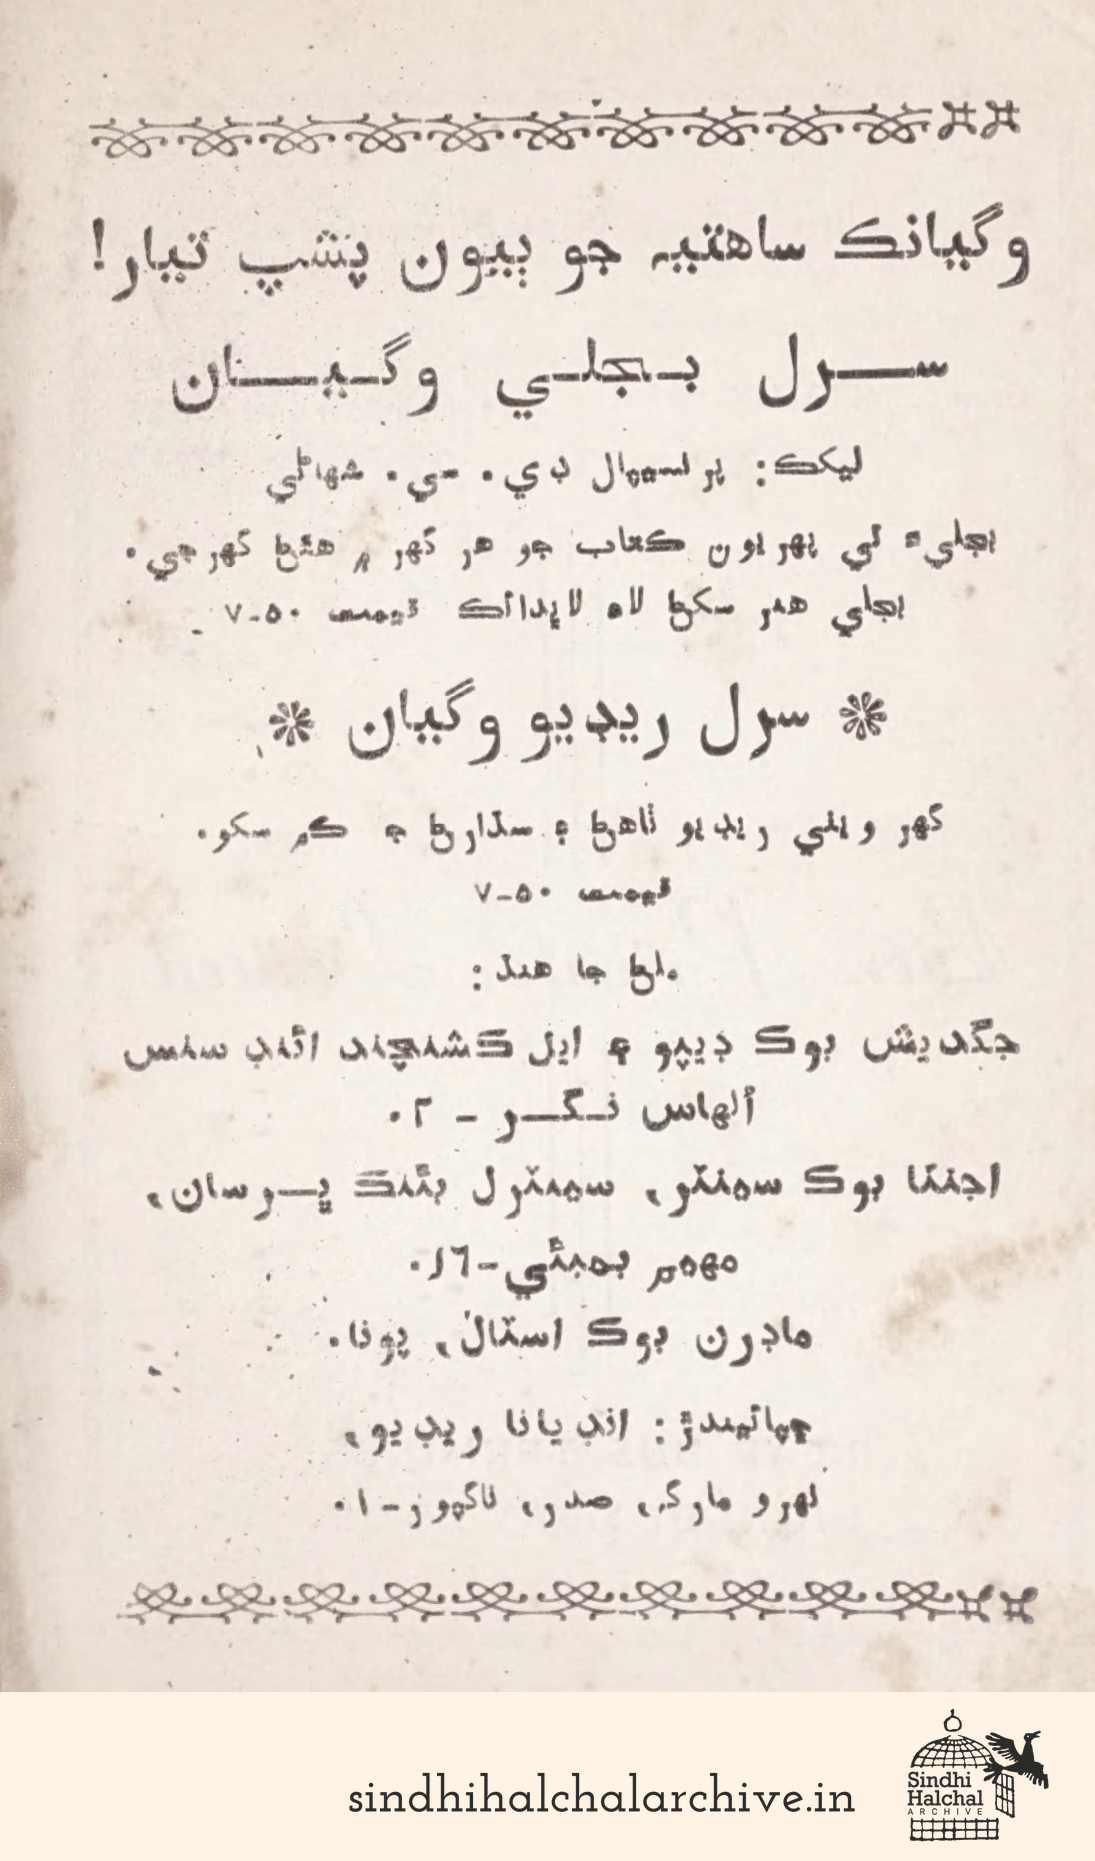 وگيانڪ ساهتيہ جو ٻيون پشپ تيار!
سرل بجلي وگينان
ليکڪ: پرنسيپال ڊي. سي. شهاڻي
بجليءَ تي پهريون ڪتاب جو هر گهر ۾ هئڻ گهرجي.
بجلي هنر سکڻ لاءِ لاڀدائڪ قيمت ۵۰-۷
سرل ريڊيو وگيان
گهر ويٺي ريڊيو ٺاهڻ ۽ سڌارڻ جو ڪم سکو.
قيمت ۵۰-۷
ملڻ جا هنڌ:
جگديش بوڪ ڊيپو ۽ ايل ڪشنچند ائنڊ سنس
اُلهاس نگر - ۲.
اجنتا بوڪ سينٽر، سينٽرل بئنڪ ڀرسان،
ماهم بمبئي-۱٦.
ماڊرن بوڪ اسٽال، پونا.
ڇپائيندڙ: انڊيانا ريڊيو،
نهرو مارڪ، صدر، ناگپور-۱.
sindhihalchalarchive.in
Sindhi
Halchal
ARCHIVE